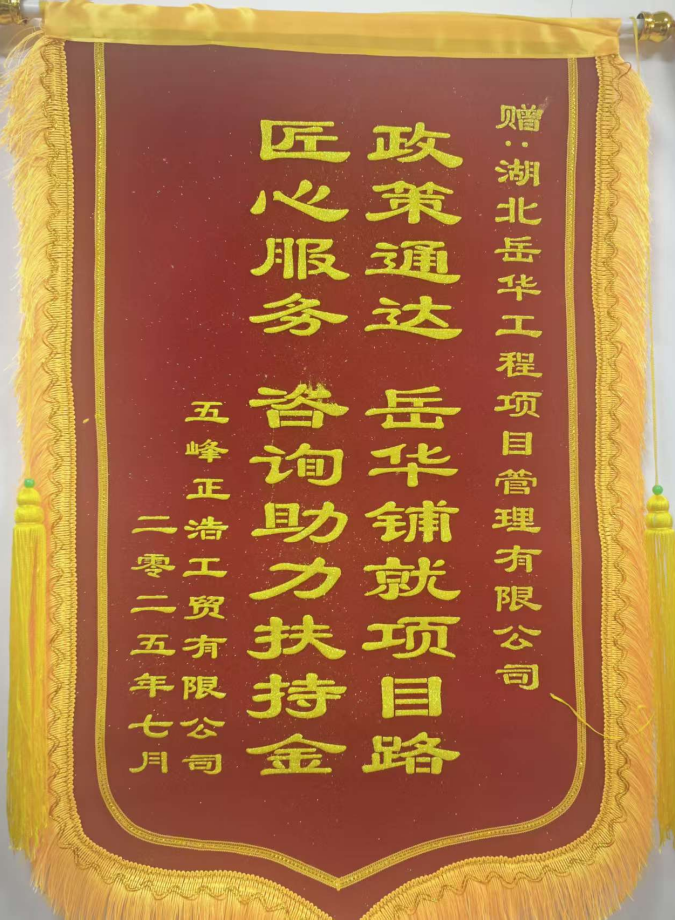 赠：湖北岳华工程项目管理有限公司
政策通达 岳华铺就项目路
匠心服务 咨询助力扶持金
五峰正浩工贸有限公司
二零二五年七月